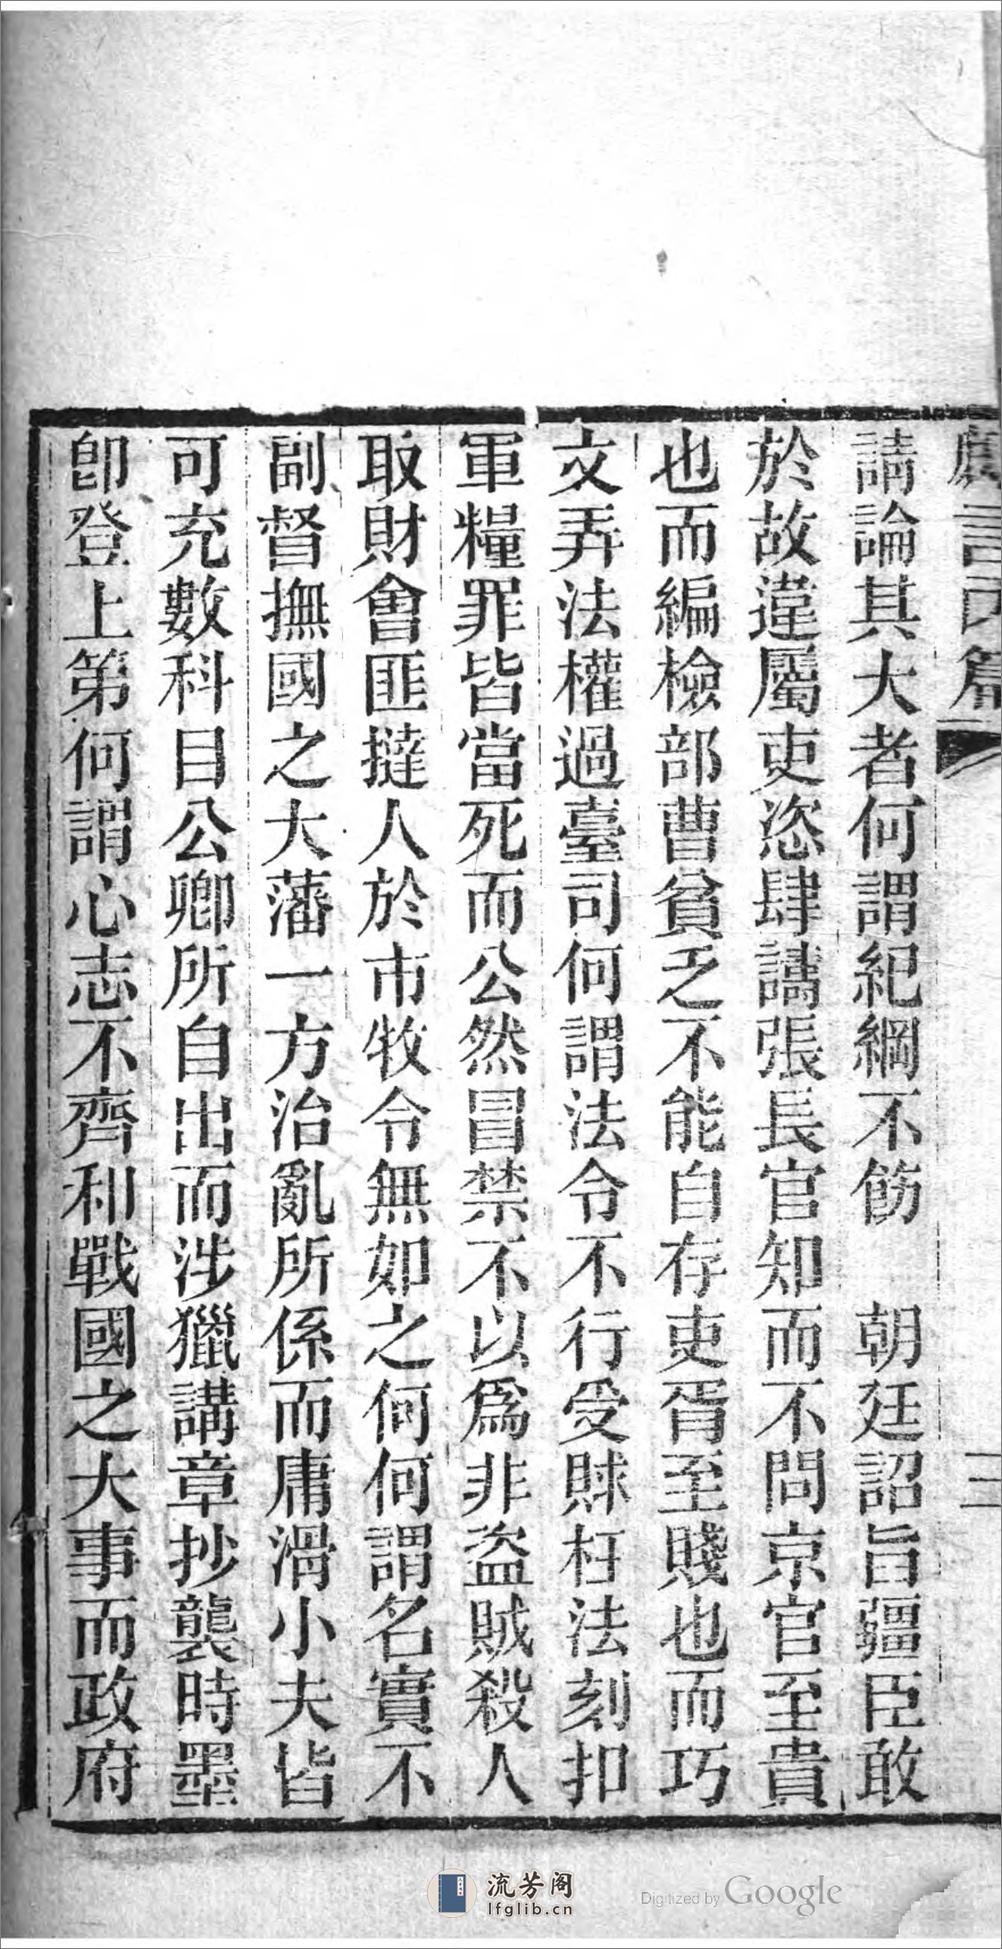 請論其大者何謂紀綱不飭　朝廷詔旨疆臣敢
於故違屬吏恣肆譸張長官知而不問京官至貴
也而編檢部曹貧乏不能自存吏胥至賤也而巧
文弄法權過臺司何謂法令不行受賕枉法刻扣
軍糧罪皆當死而公然冒禁不以爲非盜賊殺人
取財會匪撻人於市牧令無如之何何謂名實不
副督撫國之大藩一方治亂所係而庸滑小夫皆
可充數科目公卿所自出而涉獵講章抄襲時墨
卽登上第何謂心志不齊和戰國之大事而政府
言丙篇
三
流芳阁
lfglib.cn
Digitized by Google